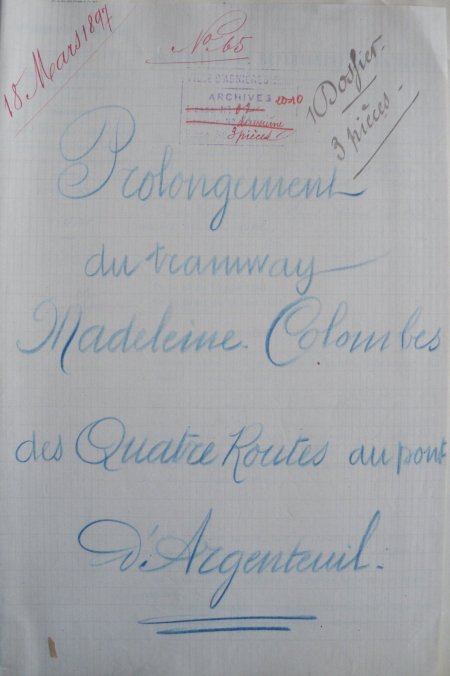 18 Mars 1897
No. 65
VILLE D'ASNIÈRES
ARCHIVES
2010
3 pièces
1 Dossier.
3 pièces -
Prolongement
du tramway
Madeleine. Colombes
des Quatre Routes au pont
d'Argenteuil.